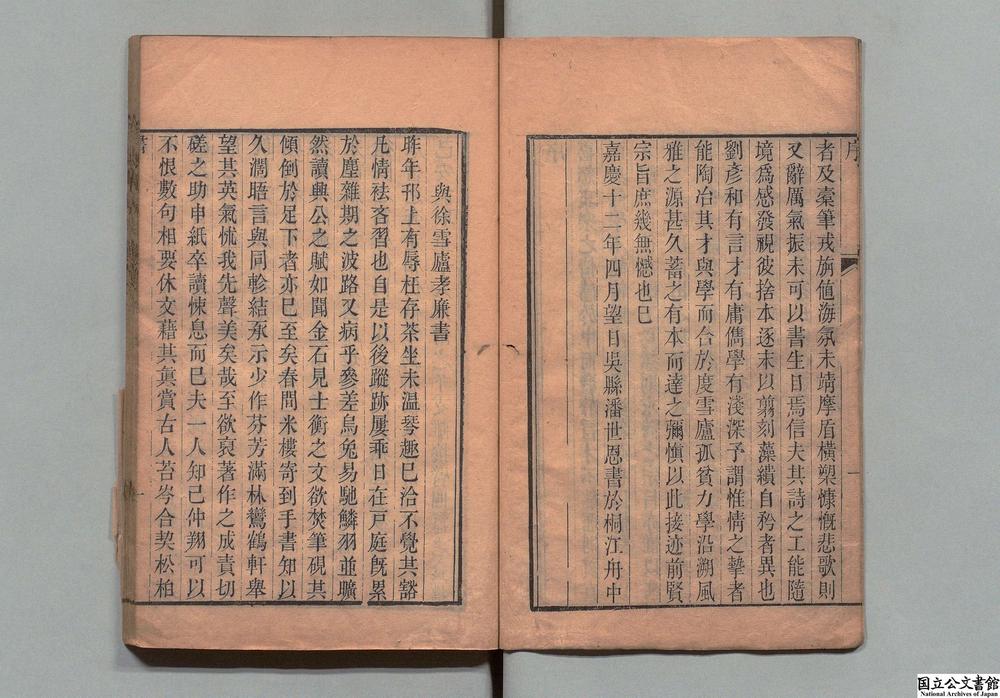 序
者及橐筆戎旃值海氛未靖摩盾橫槊慷慨悲歌則
又辭厲氣振未可以書生目焉信夫其詩之工能隨
境爲感發視彼捨本逐末以翦刻藻繢自矜者異也
劉彥和有言才有庸儁學有淺深予謂惟情之摯者
能陶冶其才與學而合於度雪廬孤貧力學沿溯風
雅之源甚久蓄之有本而達之彌愼以此接迹前賢
宗旨庶幾無憾也已
嘉慶十二年四月望日吳縣潘世恩書於桐江舟中
一
與徐雪廬孝廉書
昨年邗上有辱枉存茶坐未温琴趣已洽不覺其豁
凡情袪吝習也自是以後蹤跡屢乖日在戸庭旣累
於塵雜期之波路又病乎參差烏兔易馳鱗羽並曠
然讀興公之賦如聞金石見士衡之文欲焚筆硯其
傾倒於足下者亦已至矣春間米樓寄到手書知以
久濶晤言與同軫結承示少作芬芳滿林鸞鶴軒舉
望其英氣怵我先聲美矣哉至欲裒著作之成責切
磋之助申紙卒讀悚息而已夫一人知己仲翔可以
不恨數句相要休文藉其眞賞古人苔岑合契松柏
書
一
国立公文書館
National Archives of Japan